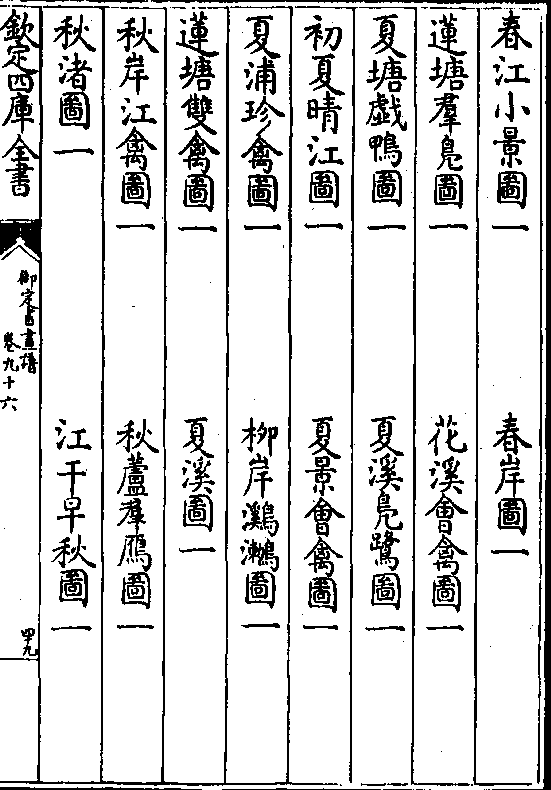 春江小景圖一　春岸圖一
蓮塘羣鳧圖一　花溪會禽圖一
夏塘戲鴨圖一　夏溪鳧鷺圖一
初夏晴江圖一　夏景會禽圖一
夏浦珍禽圖一　柳岸鸂鷘圖一
蓮塘雙禽圖一　夏溪圖一
秋岸江禽圖一　秋蘆羣鴈圖一
秋渚圖一　江干早秋圖一
欽定四庫全書
御定書畫譜
卷九十六
四九